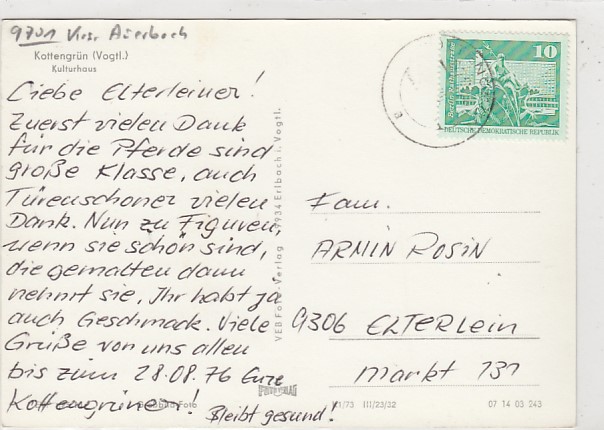 9701 Krs. Auerbach
Kottengrün (Vogtl.)
Kulturhaus
Liebe Elterleiner!
Zuerst vielen Dank
für die Pferde sind
große Klasse, auch
Türenschoner vielen
Dank. Nun zu Figuren,
wenn sie schön sind,
die gemalten dann
nehmt sie, Ihr habt ja
auch Geschmack. Viele
Grüße von uns allen
bis zum 28.08.76 Eure
Kottengrüner!
Bleibt gesund!
VEB Foto-Verlag 9934 Erlbach i. Vogtl.
10
DEUTSCHE DEMOKRATISCHE REPUBLIK
Fam.
ARMIN ROSIN
9306 ELTERLEIN
Markt 131
Foto
1/73 III/23/32
07 14 03 243